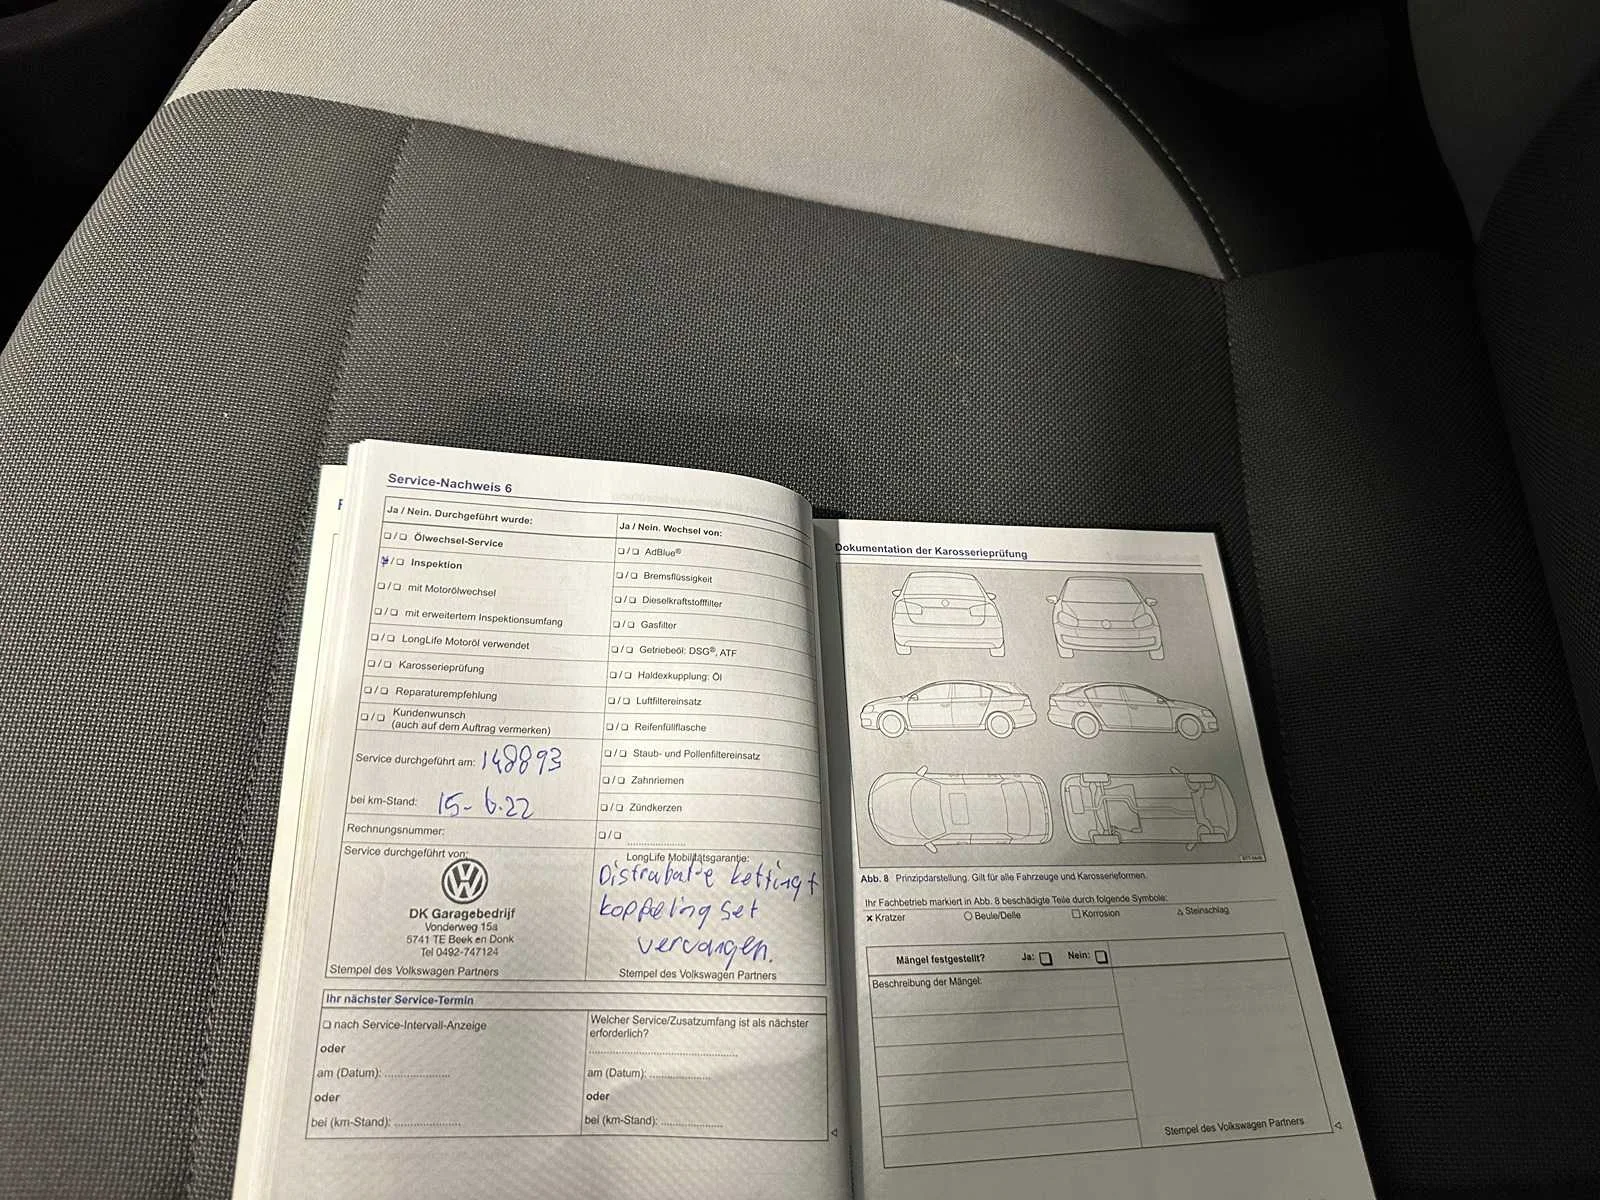 Service-Nachweis 6
Ja / Nein. Durchgeführt wurde:
❏ / ❏ Ölwechsel-Service
❏ / ❏ Inspektion
❏ / ❏ mit Motorölwechsel
❏ / ❏ mit erweitertem Inspektionsumfang
❏ / ❏ LongLife Motoröl verwendet
❏ / ❏ Karosserieprüfung
❏ / ❏ Reparaturempfehlung
❏ / ❏ Kundenwunsch
(auch auf dem Auftrag vermerken)
Service durchgeführt am: 148893
bei km-Stand: 15-6.22
Rechnungsnummer:
Service durchgeführt von:
DK Garagebedrijf
Vonderweg 15a
5741 TE Beek en Donk
Tel 0492-747124
Stempel des Volkswagen Partners
Ja / Nein. Wechsel von:
❏ / ❏ AdBlue®
❏ / ❏ Bremsflüssigkeit
❏ / ❏ Dieselkraftstofffilter
❏ / ❏ Gasfilter
❏ / ❏ Getriebeöl: DSG®, ATF
❏ / ❏ Haldexkupplung: Öl
❏ / ❏ Luftfiltereinsatz
❏ / ❏ Reifenfüllflasche
❏ / ❏ Staub- und Pollenfiltereinsatz
❏ / ❏ Zahnriemen
❏ / ❏ Zündkerzen
❏ / ❏
LongLife Mobilitätsgarantie:
Distrabutie ketting +
koppeling set
vervangen.
Stempel des Volkswagen Partners
Ihr nächster Service-Termin
❏ nach Service-Intervall-Anzeige
oder
am (Datum): ....................
oder
bei (km-Stand): ....................
Welcher Service/Zusatzumfang ist als nächster
erforderlich?
am (Datum): ....................
oder
bei (km-Stand): ....................
Dokumentation der Karosserieprüfung
Abb. 8 Prinzipdarstellung. Gilt für alle Fahrzeuge und Karosserieformen.
Ihr Fachbetrieb markiert in Abb. 8 beschädigte Teile durch folgende Symbole:
× Kratzer ○ Beule/Delle □ Korrosion △ Steinschlag
Mängel festgestellt? Ja: ❏ Nein: ❏
Beschreibung der Mängel:
Stempel des Volkswagen Partners